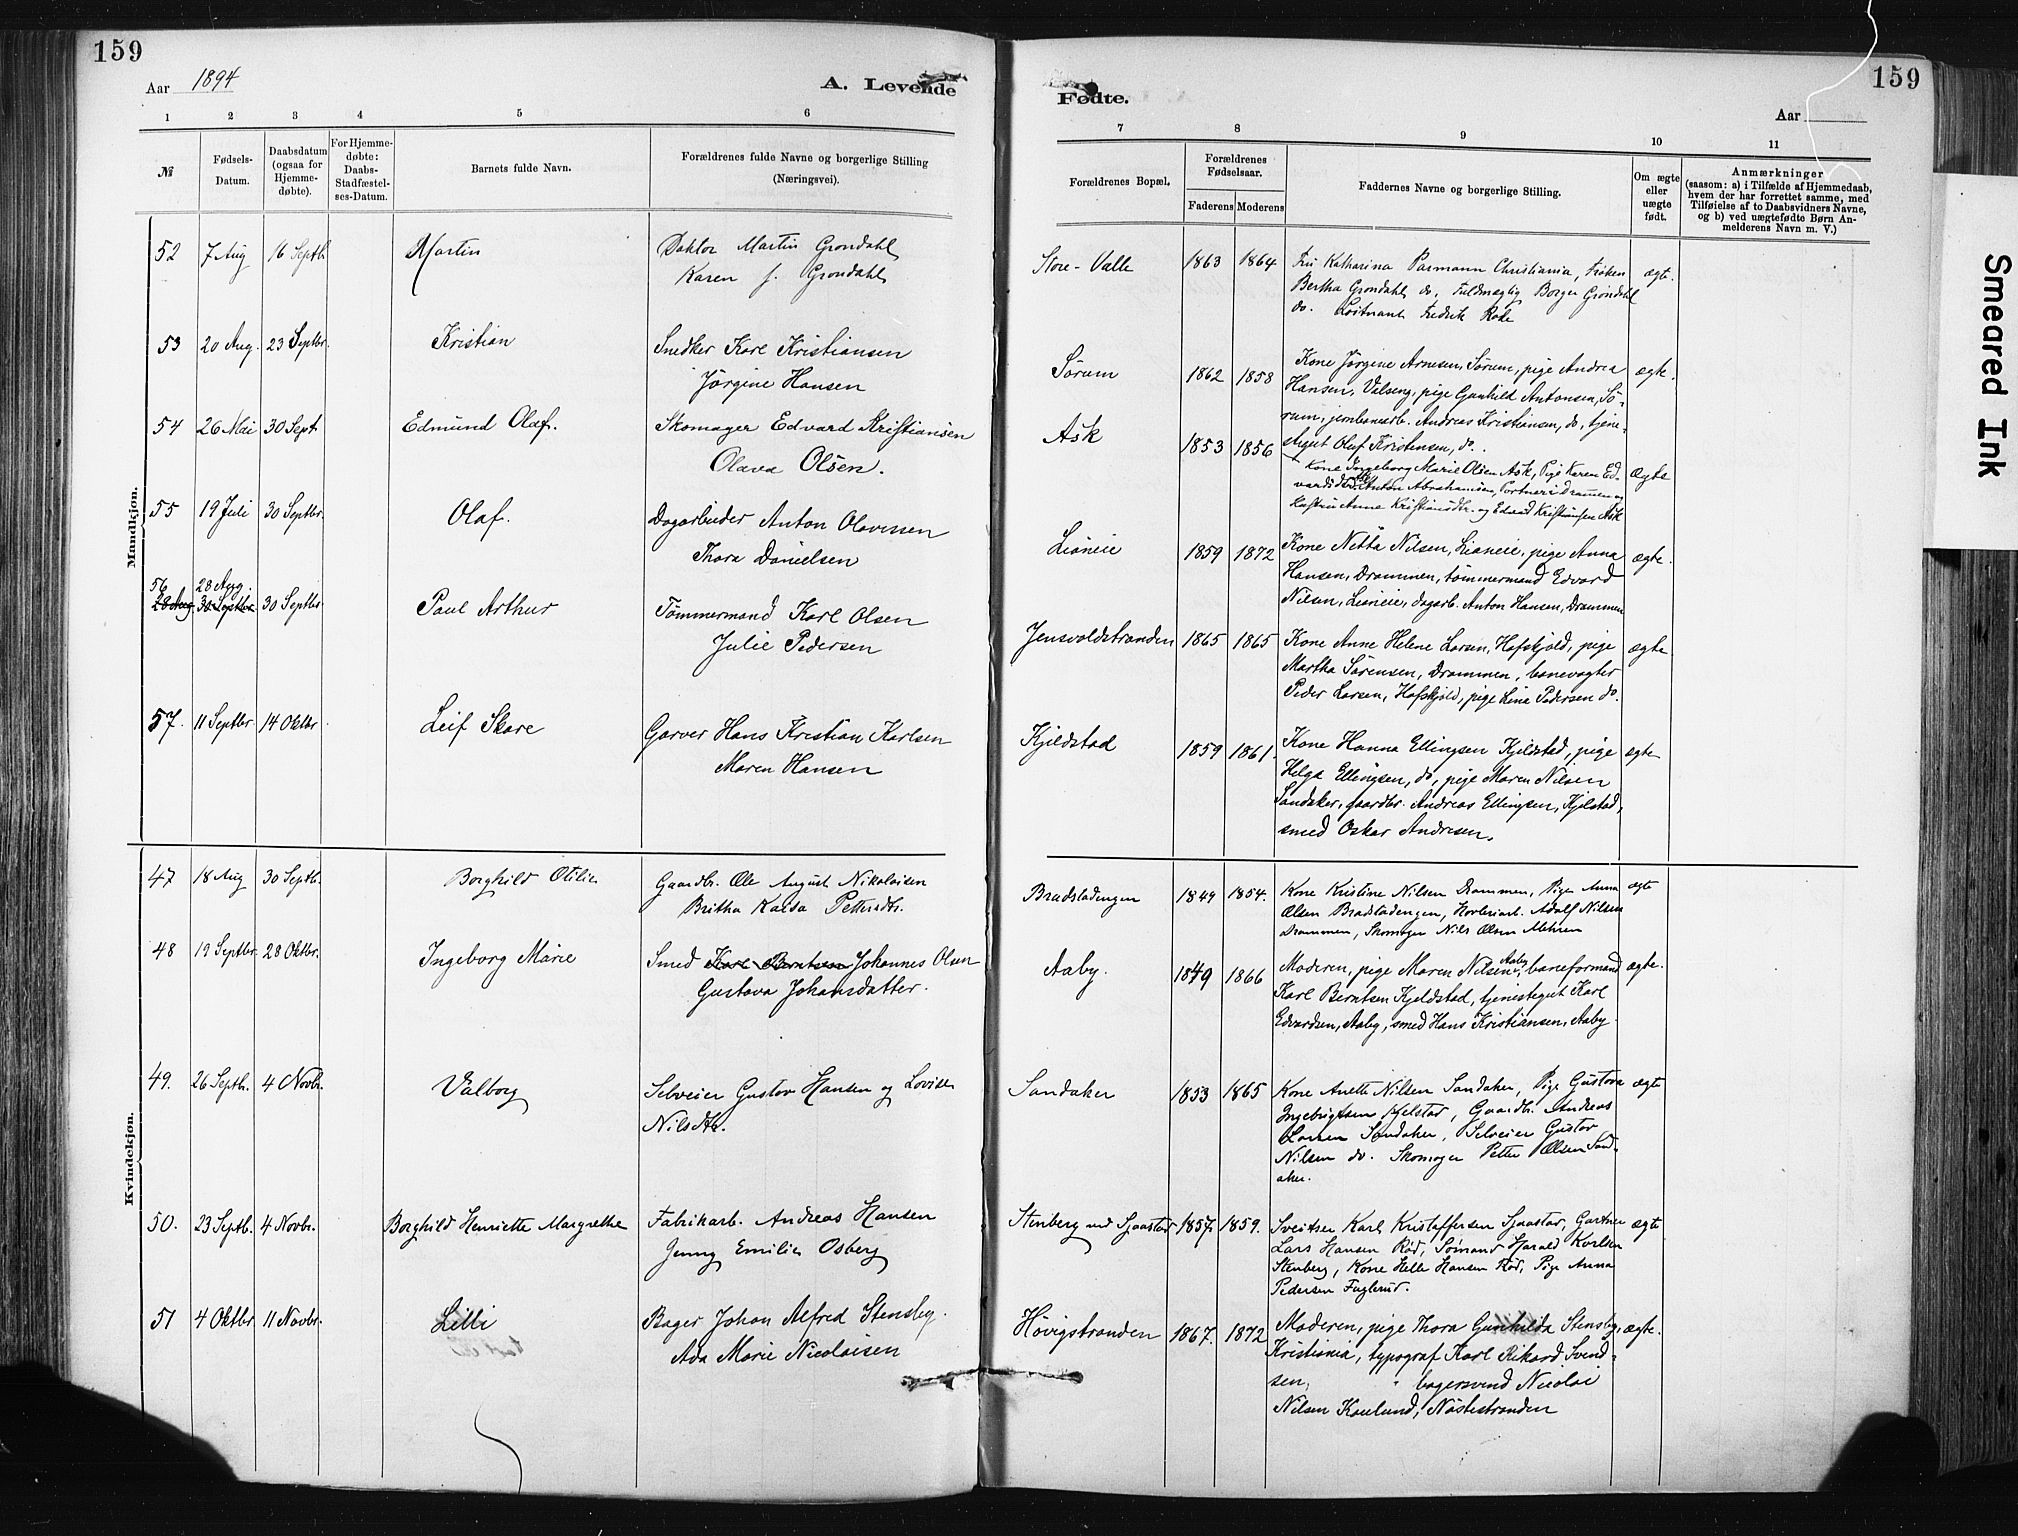 159
Aar 1894
A. Levende
1 2 3 4 5 6
№
Fødsels-
Datum.
Daabsdatum
(ogsaa for
Hjemme-
døbte).
For Hjemme-
døbte:
Daabs-
Stadfæstel-
ses-Datum.
Barnets fulde Navn.
Forældrenes fulde Navne og borgerlige Stilling
(Næringsvei).
Mandkjøn.
52 7 Aug 16 Septb Martin Doktor Martin Grøndahl
Karen J. Grøndahl
53 20 Aug. 23 Septbr. Kristian Snedker Karl Kristiansen
Jørgine Hansen
54 26 Mai 30 Sept. Edmund Olaf. Skomager Edvard Kristiansen
Olava Olsen.
55 19 Juli 30 Septbr. Olaf. Dagarbeider Anton Olavesen
Thora Danielsen
56 28 Aug.
28 Aug 30 Septbr. 30 Septbr Paul Arthur Tømmermand Karl Olsen
Julie Pedersen
57. 11 Septbr 14 Oktbr Leif Skare Garver Hans Kristian Karlsen
Maren Hansen
Kvindekjøn.
47 18 Aug 30 Septb. Borghild Otilie Gaardbr. Ole August Nikolaisen
Britha Kaisa Pettersdtr.
48 19 Septbr. 28 Oktbr. Ingeborg Marie Smed Karl Berntsen Johannes Olsen
Gustava Johansdatter.
49. 26 Septb. 4 Novbr. Valborg Selveier Gustav Hansen og Lovise
Nilsdtr.
50. 23 Septb. 4 Novbr. Borghild Henriette Margrethe Fabrikarb. Andreas Hansen
Jenny Emilie Osberg
51 4 Oktbr 11 Novbr. Lilli Bager Johan Alfred Stensby.
Ada Marie Nicolaisen
159
Fødte.
Aar
7 8 9 10 11
Forældrenes Bopæl.
Forældrenes
Fødselsaar.
Faderens Moderens
Faddernes Navne og borgerlige Stilling.
Om ægte
eller
uægte
født.
Anmærkninger
(saasom: a) i Tilfælde af Hjemmedaab,
hvem der har forrettet samme, med
Tilføielse af to Daabsvidners Navne,
og b) ved uægtefødte Børn An-
melderens Navn m. V.)
Store-Valle 1863 1864 Fru Katharina Parmann Christiania, Frøken ægte.
Bertha Grøndahl do, Fuldmægtig Borger Grøndahl
do. Løitnant Fredrik Rode
Sørum 1862 1858 Kone Jørgine Arnesen, Sørum, pige Andrea ægte.
Hansen, Valseng, pige Gunhild Antonsen, Sø-
rum, jernbanearb. Andreas Kristiansen, do, tjene-
stegut Olaf Kristensen, do.
Ask 1853 1856 Kone Ingeborg Marie Olsen Ask, Pige Karen Ed- ægte
vardsdtr Anton Abrahamsen, Portner i Drammen og
Hustru Anne Kristiansdtr. og Edvard Kristiansen Ask
Lianeie 1859 1872 Kone Netta Nilsen, Lianeie, pige Anna ægte.
Hansen, Drammen, tømmermand Edvard
Nilsen, Lianeie, dagarb. Anton Hansen, Drammen
Jensvoldstranden 1865 1865 Kone Anne Helene Larsen, Hafskjold, pige ægte
Martha Sørensen, Drammen, banevogter
Peder Larsen, Hafskjold, pige Lina Pedersen do.
Kjeldstad 1859 1861. Kone Hanna Ellingsen Kjeldstad, pige ægte
Helga Ellingsen, do, pige Maren Nilsen
Sandaker, gaardbr. Andreas Ellingsen, Kjelstad,
smed Oskar Andresen.
Bradstadengen 1849 1854. Kone Kristine Nilsen Drammen, Pige Anna ægte
Olsen Bradstadengen, Høvleriarb. Adolf Nilsen
Drammen, Skomager Nils Olsen Mehren
Aaby. 1849 1866 Moderen, pige Maren Nilsen Aaby, baneformand ægte.
Karl Berntsen Kjeldstad, tjenestegut Karl
Edvardsen, Aaby, smed Hans Kristiansen, Aaby.
Sandaker 1853 1865 Kone Anette Nilsen Sandaker, Pige Gustava ægte
Ingebrigtsen Kjelstad, Gaardbr. Andreas
Larsen Sandaker, Selveier Gustav
Nilsen do. Skomager Petter Olsen Sand-
aker.
Stenberg und Sjaastad 1857. 1859. Sveitser Karl Kristoffersen Sjaastad, Gartner ægte
Lars Hansen Rød, Sømand Harald Karlsen
Stenberg, Kone Helle Hansen Rød, Pige Anna
Pedersen Fuglerud.
Høvigstranden 1867. 1872 Moderen, pige Thora Gunhilda Stensby, ægte.
Kristiania, typograf Karl Rikard Svend-
sen, " bagersvend Nicolai
Nilsen Kaulund, Nøstestranden
Smeared Ink